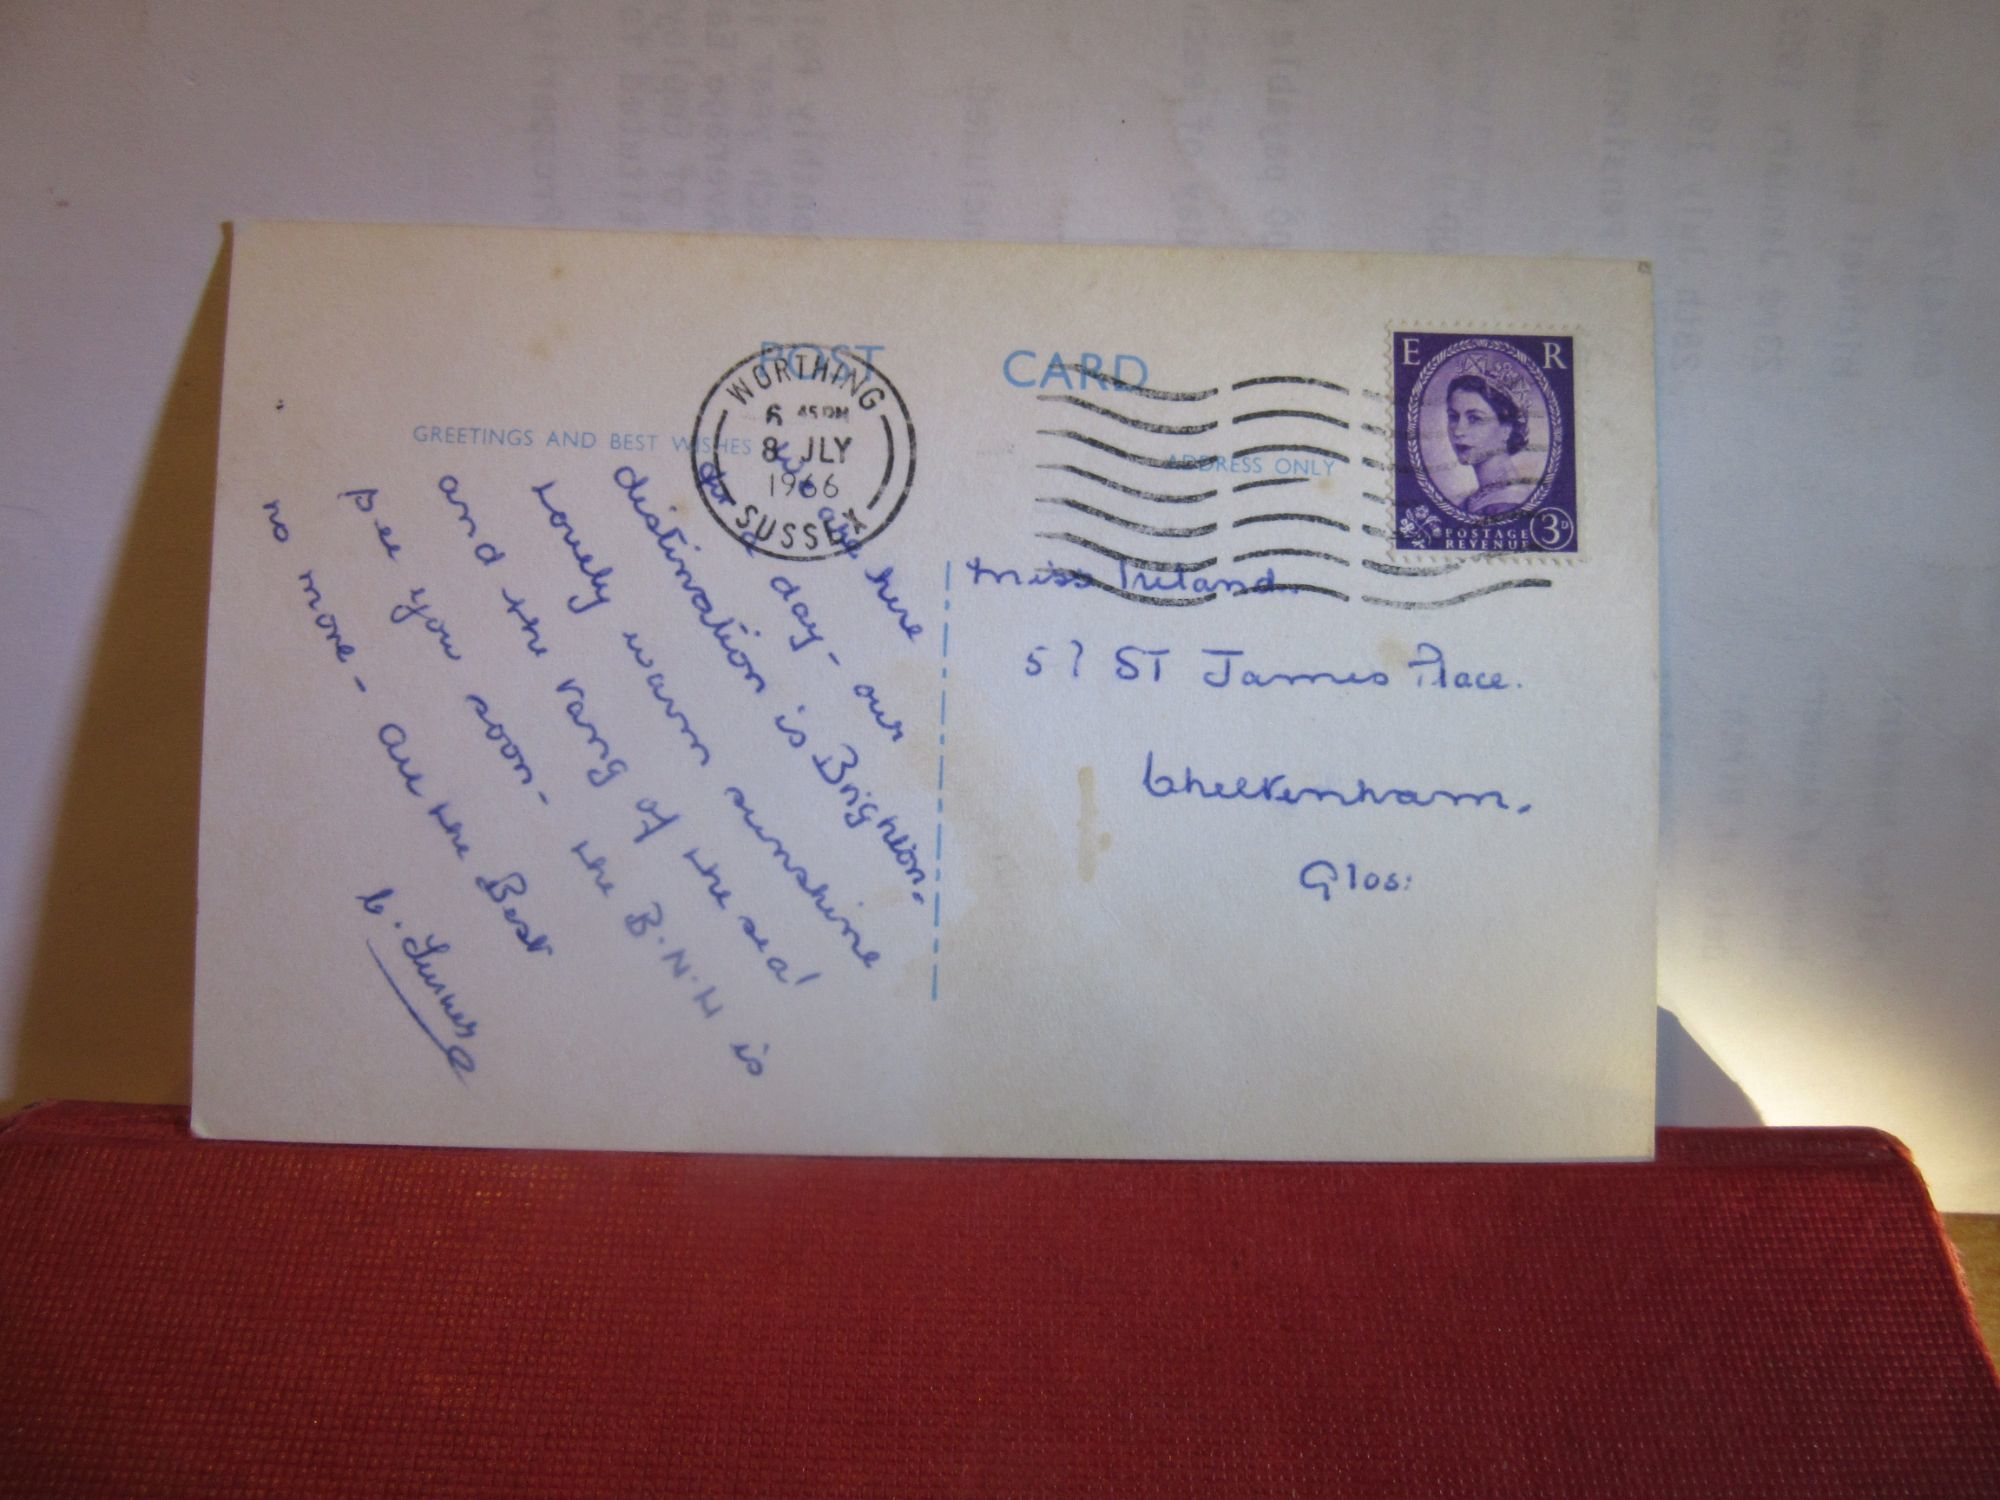 POST CARD
GREETINGS AND BEST WISHES
ADDRESS ONLY
WORTHING
6 45 PM
8 JLY
1966
SUSSEX
E R
POSTAGE
REVENUE
3D
We are here
for day - our
distination is Brighton.
Lovely warm sunshine
and the tang of the sea!
See you soon - the B.N.H is
no more - All the Best
Miss Ireland.
57 ST James Place.
Cheltenham.
Glos: